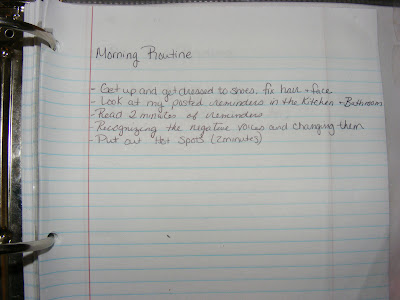 Morning Routine
- Get up and get dressed to shoes. fix hair + face
- Look at my posted reminders in the Kitchen + Bathroom
- Read 2 minutes of reminders
- Recognizing the negative voices and changing them
- Put out Hot Spots (2 minutes)